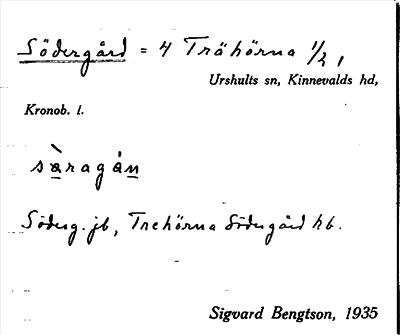 Södergård = 4 Trähörna 1/2,
Urshults sn, Kinnevalds hd,
Kronob. l.
sàragån
Söderg. jb, Trehörna Södergård hb.
Sigvard Bengtson, 1935